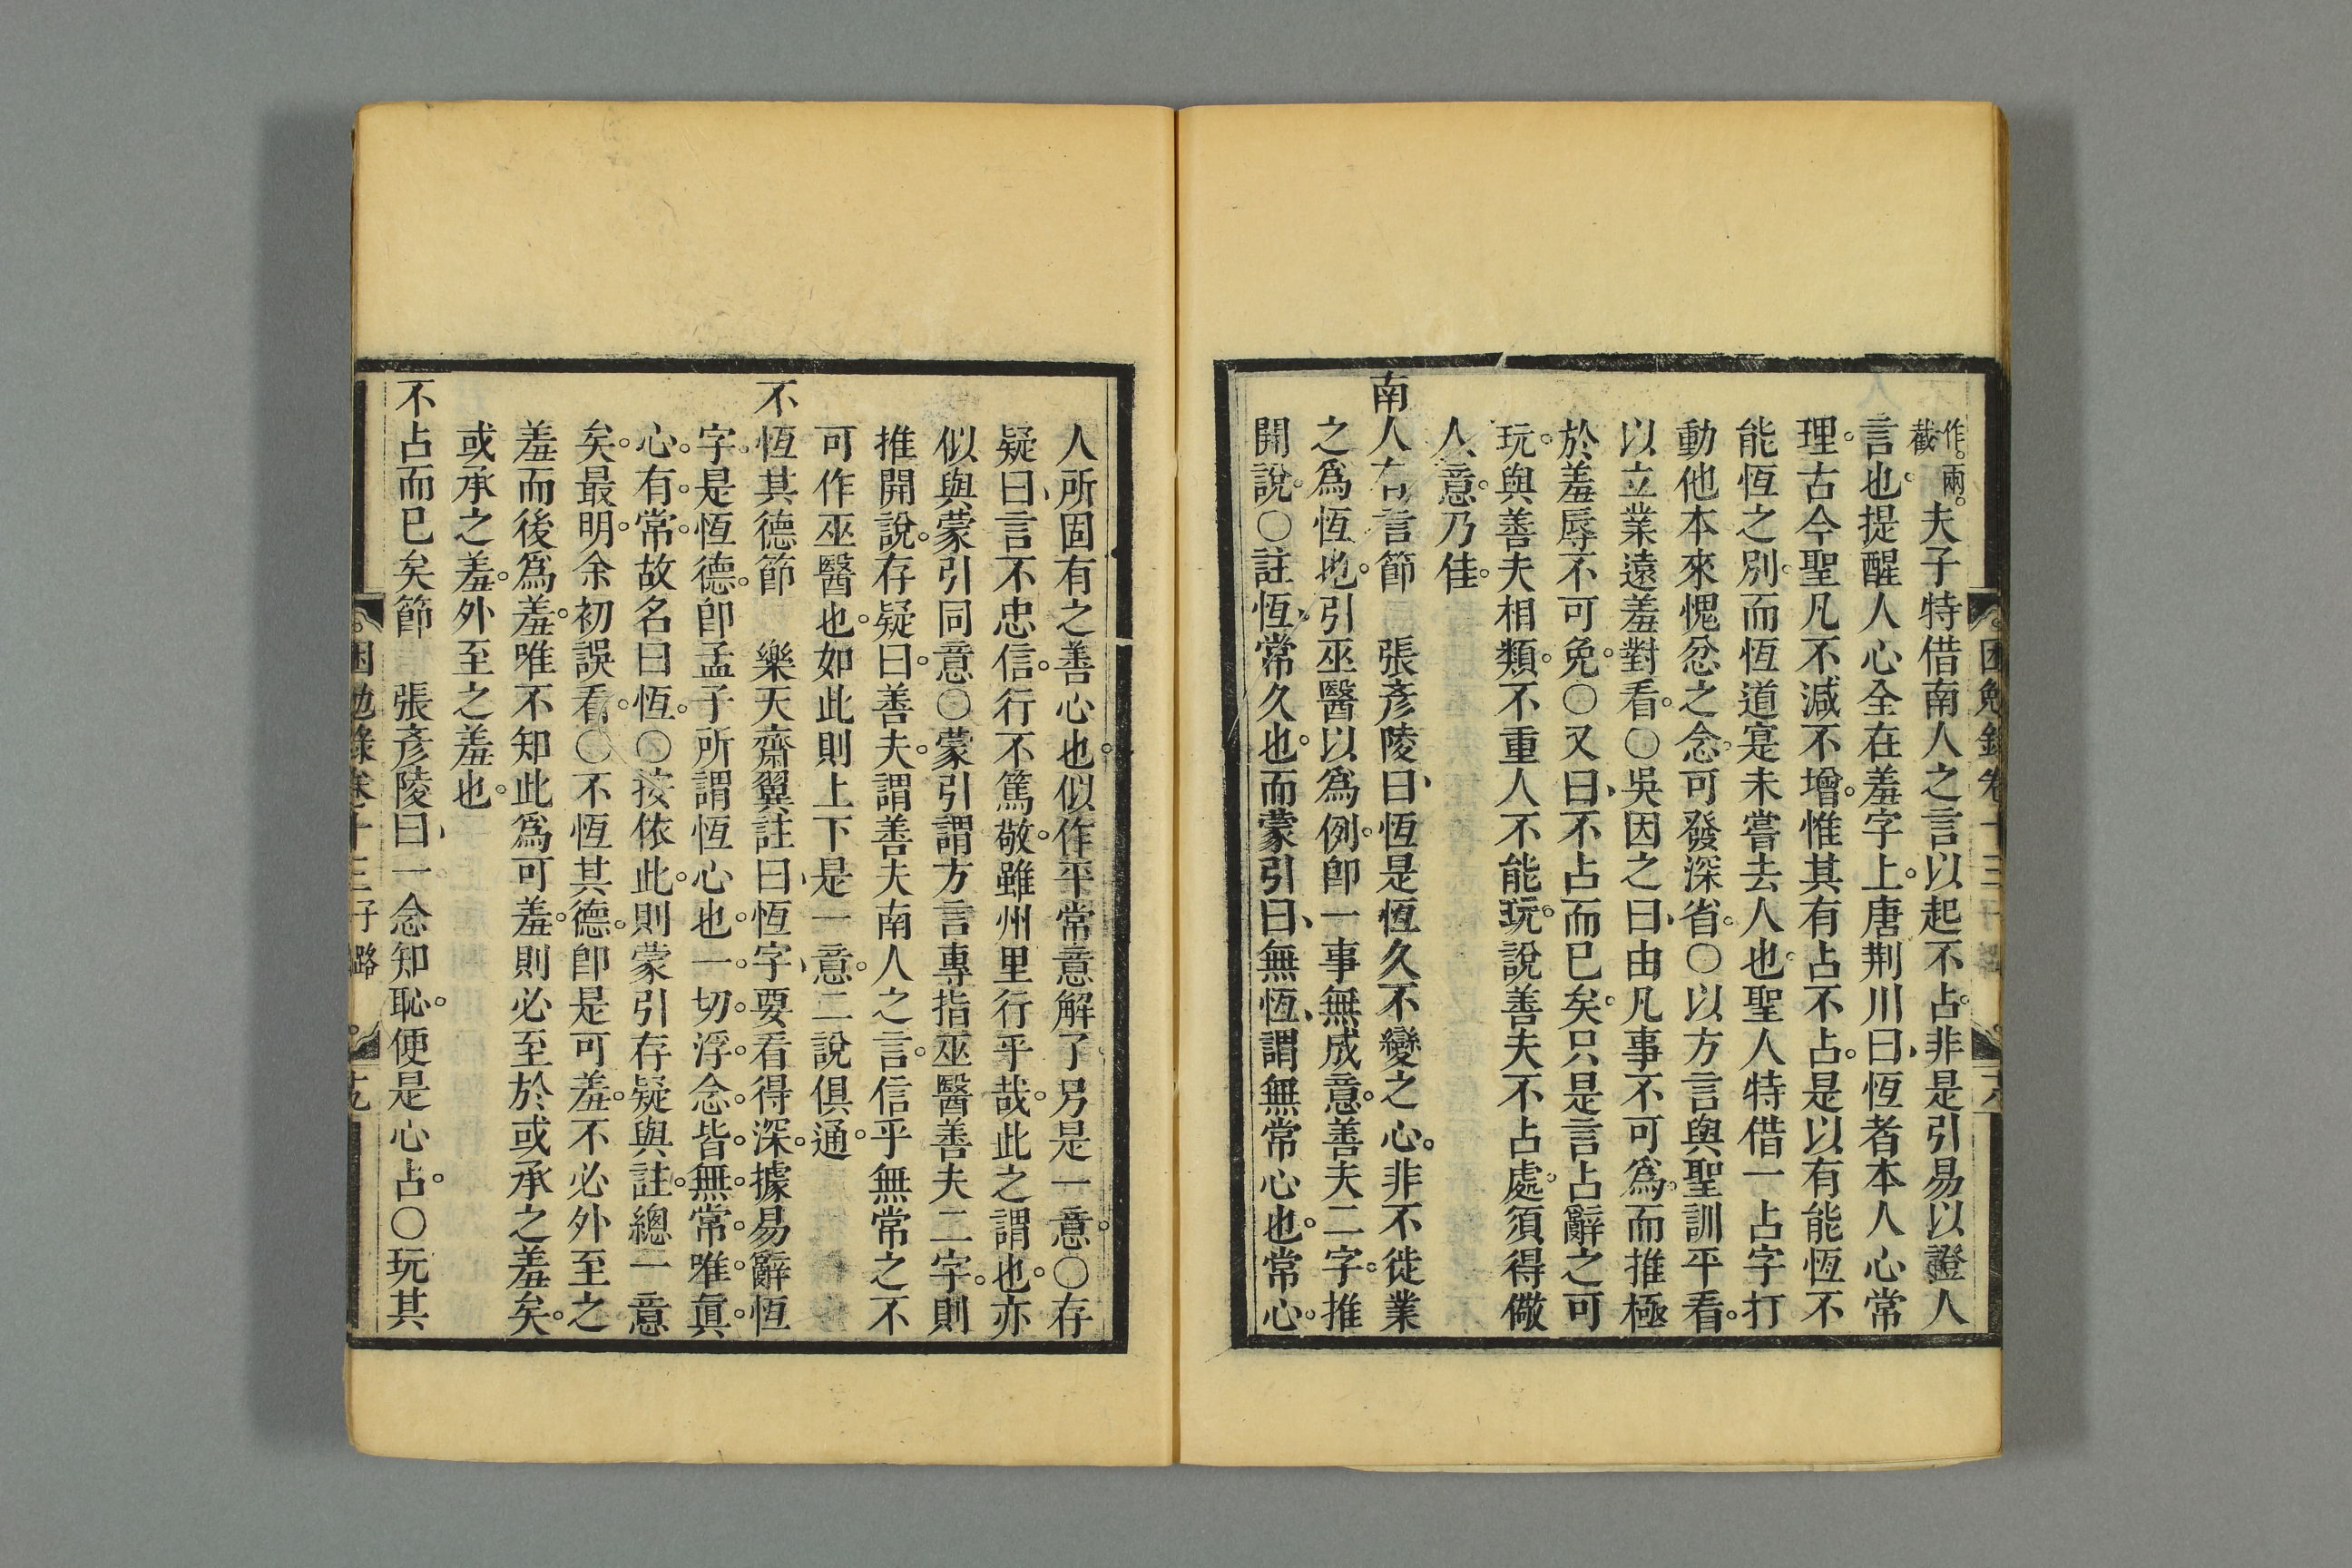 作。兩。截夫子特借南人之言以起不占。非是引易以證人
言也。提醒人心全在羞字上。唐荆川曰、恆者本人心常
理。古今聖凡不減不增。惟其有占不占。是以有能恆不
能恆之別。而恆道寔未嘗去人也。聖人特借一占字打
動他本來愧忿之念。可發深省。○以方言與聖訓平看。
以立業遠羞對看。○吳因之曰、由凡事不可為。而推極
於羞辱不可免。○又曰、不占而已矣。只是言占辭之可
玩。與善夫相類。不重人不能玩。說善夫不占處。須得儆
人意。乃佳。
南人有言節　張彥陵曰、恆是恆久不變之心。非不徙業
之爲恆也。引巫醫以爲例。卽一事無成意。善夫二字。推
開說。○註恆、常久也。而蒙引曰、無恆、謂無常心也。常心。
困勉錄卷十三子路
人所固有之善心也。似作平常意解了。另是一意。○存
疑曰、言不忠信。行不篤敬。雖州里行乎哉。此之謂也。亦
似與蒙引同意○蒙引謂方言專指巫醫善夫二字。則
推開說。存疑曰。善夫。謂善夫南人之言。信乎無常之不
可作巫醫也。如此則上下是一意。二說俱通。
不恆其德節　樂天齋翼註曰、恆字、要看得深。據易辭恆
字。是恆德。卽孟子所謂恆心也。一。切。浮。念。皆。無。常。唯。眞。
心。有。常。故名曰恆。○按依此。則蒙引存疑與註。總一意
矣。最明。余初誤看。○不恆其德。卽是可羞。不必外至之
羞而後爲羞。唯不知此爲可羞。則必至於或承之羞矣。
或承之羞。外至之羞也。
不占而已矣節　張彥陵曰、一念知恥。便是心占。○玩其
困勉錄卷十三子路　十九